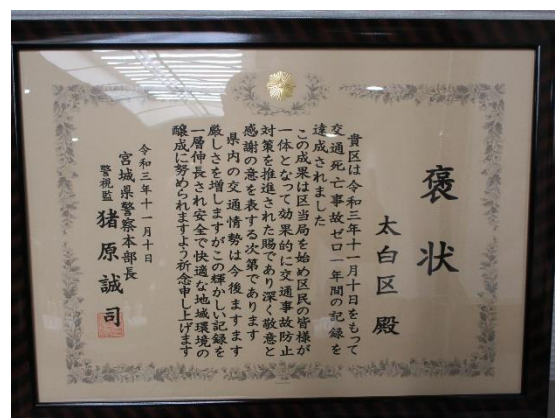 褒状
太白区 殿
貴区は令和三年十一月十日をもって
交通死亡事故ゼロ一年間の記録を
達成されました
この成果は区当局を始め区民の皆様が
一体となって効果的に交通事故防止
対策を推進された賜であり深く敬意と
感謝の意を表する次第であります
県内の交通情勢は今後ますます
厳しさを増しますがこの輝かしい記録を
一層伸長され安全で快適な地域環境の
醸成に努められますよう祈念申し上げます
令和三年十一月十日
宮城県警察本部長
警視監 猪原誠司